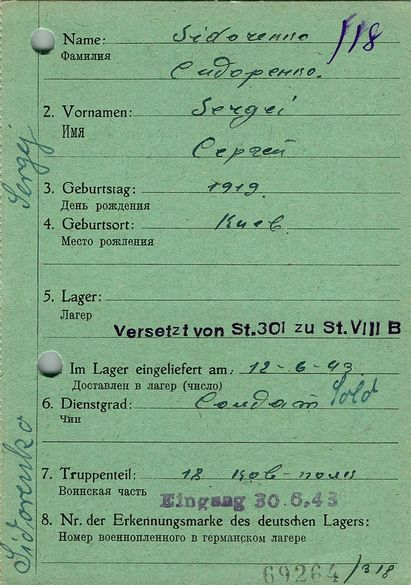 Name: Sidorenko /18
Фамилия Сидоренко.
2. Vornamen: Sergei
Имя Сергей
3. Geburtstag: 1919.
День рождения
4. Geburtsort: Киев.
Место рождения
5. Lager:
Лагер
Versetzt von St.301 zu St.VIII B
Im Lager eingeliefert am: 12-6-43
Доставлен в лагер (число)
6. Dienstgrad: Солдат Sold
Чин
7. Truppenteil: 18 Кав-полк
Воинская часть Eingang 30.6.43
8. Nr. der Erkennungsmarke des deutschen Lagers:
Номер военнопленного в германском лагере
69264 /318
Sidorenko Sergej